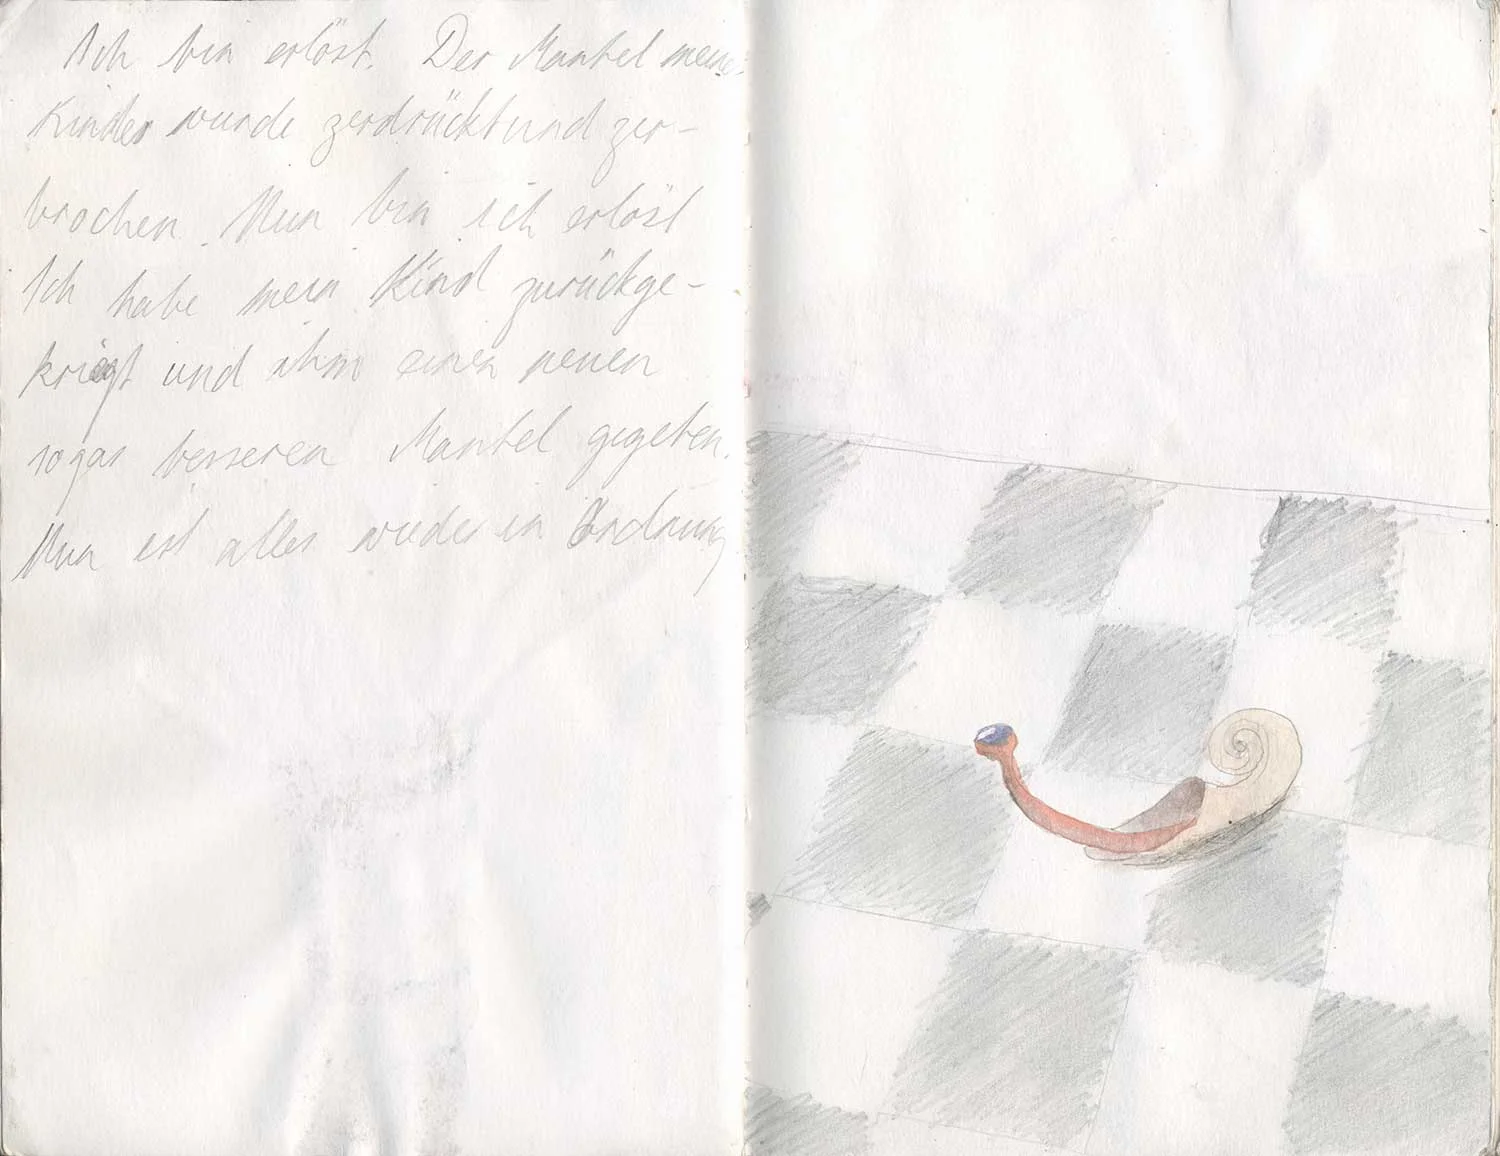 Ich bin erlöst. Der Mantel meines
Kindes wurde zerdrückt und zer-
brochen. Nun bin ich erlöst
Ich habe mein Kind zurückge-
kriegt und ihm einen neuen
sogar besseren Mantel gegeben.
Nun ist alles wieder in Ordnung